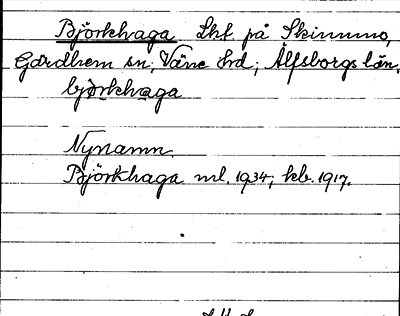 Björkhaga Lhf på Skinnmo,
Gärdhem sn, Väne hd, Älfsborgs län.
bjo̱rkhaga
Nynamn.
Björkhaga ml. 1934; kb. 1917.